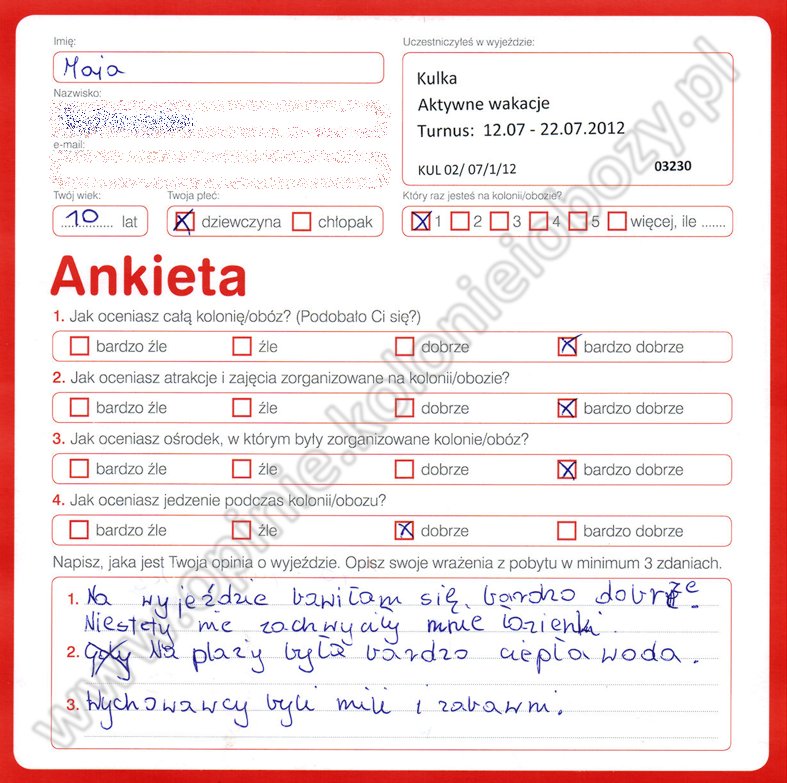 Imię:
Maja
Nazwisko:
e-mail:
Twój wiek:
10 lat
Twoja płeć:
dziewczyna chłopak
Uczestniczyłeś w wyjeździe:
Kulka
Aktywne wakacje
Turnus: 12.07 - 22.07.2012
KUL 02/ 07/1/12 03230
Który raz jesteś na kolonii/obozie?
1 2 3 4 5 więcej, ile .......
Ankieta
1. Jak oceniasz całą kolonię/obóz? (Podobało Ci się?)
bardzo źle źle dobrze bardzo dobrze
2. Jak oceniasz atrakcje i zajęcia zorganizowane na kolonii/obozie?
bardzo źle źle dobrze bardzo dobrze
3. Jak oceniasz ośrodek, w którym były zorganizowane kolonie/obóz?
bardzo źle źle dobrze bardzo dobrze
4. Jak oceniasz jedzenie podczas kolonii/obozu?
bardzo źle źle dobrze bardzo dobrze
Napisz, jaka jest Twoja opinia o wyjeździe. Opisz swoje wrażenia z pobytu w minimum 3 zdaniach.
1. Na wyjeździe bawiłam się bardzo dobrze.
Niestety nie zachwyciły mnie łazienki.
2. Na plaży była bardzo ciepła woda.
3. Wychowawcy byli mili i zabawni.
www.opinie.kolonieiobozy.pl